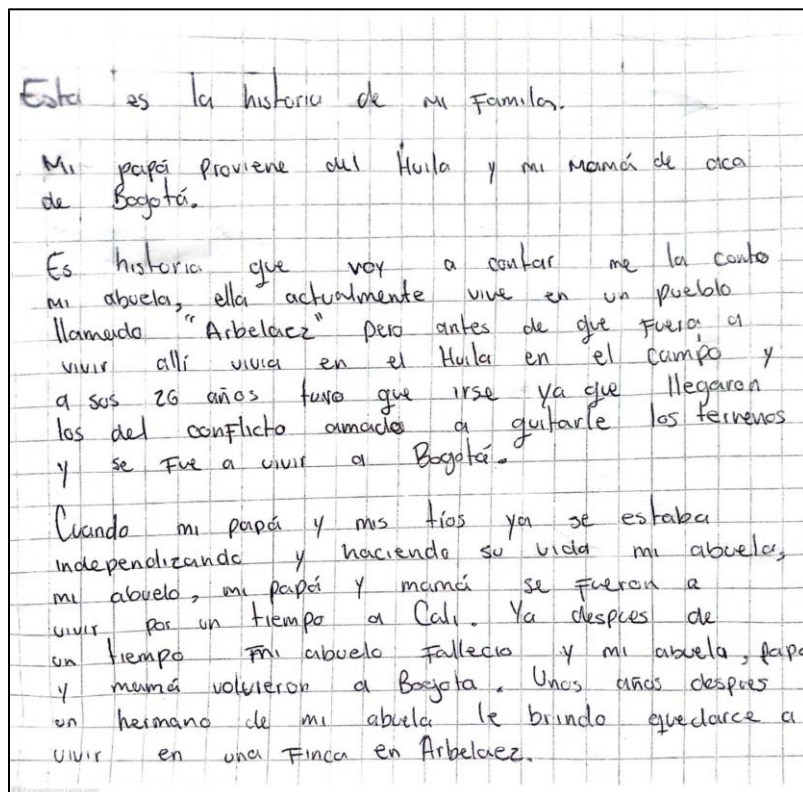 Esta es la historia de mi Famila.
Mi papá proviene del Huila y mi mamá de aca
de Bogotá.
Es historia que voy a contar me la conto
mi abuela, ella actualmente vive en un pueblo
llamado "Arbelaez" pero antes de que Fuera a
vivir allí vivia en el Huila en el campo y
a sus 26 años tuvo que irse ya que llegaron
los del conflicto amado a quitarle los terrenos
y se Fue a vivir a Bogotá.
Cuando mi papá y mis tíos ya se estaba
independizando y haciendo su vida mi abuela,
mi abuelo, mi papá y mamá se Fueron a
vivir por un tiempo a Cali. Ya despues de
un tiempo mi abuelo Fallecio y mi abuela, papa
y mamá volvieron a Bogota. Unos años despues
un hermano de mi abuela le brindo quedarce a
vivir en una Finca en Arbelaez.